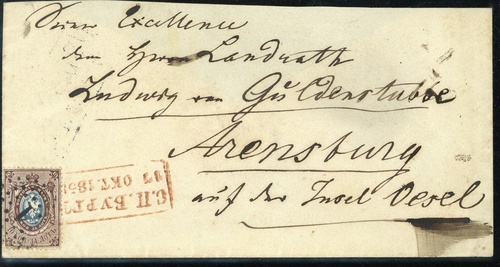 Seiner Excellence
dem Herrn Landrath
Ludwig von Güldenstubbe
Arensburg
auf der Insel Oesel
С.П.БУРГ
17 ОКТ.185